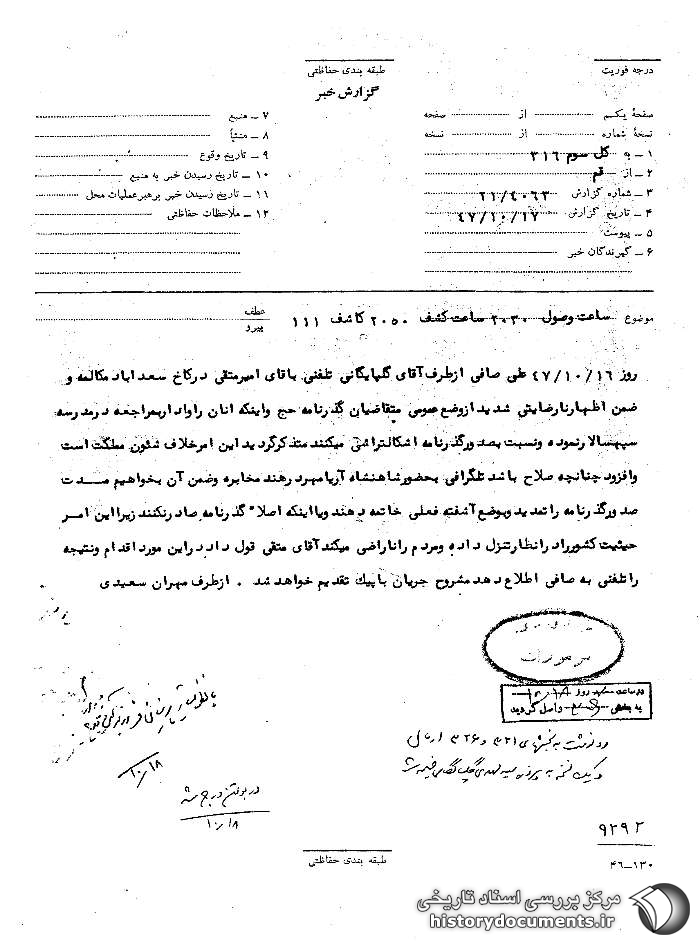 طبقه بندی حفاظتی
گزارش خبر
درجه فوریت
صفحهٔ یکم از صفحه
نسخهٔ شماره از نسخه
۱ ـ به کل سوم ۳۱۶
۲ ـ از قم
۳ ـ شماره گزارش ۲۱/۴۰۶۳
۴ ـ تاریخ گزارش ۴۷/۱۰/۱۷
۵ ـ پیوست
۶ ـ گیرندگان خبر
۷ ـ منبع
۸ ـ منشأ
۹ ـ تاریخ وقوع
۱۰ ـ تاریخ رسیدن خبر به منبع
۱۱ ـ تاریخ رسیدن خبر برهبر عملیات محل
۱۲ ـ ملاحظات حفاظتی
موضوع ساعت وصول ۲۰۳۰ ساعت کشف ۲۰۵۰ کاشف ۱۱۱
عطف
پیرو
روز ۴۷/۱۰/۱۶ علی صافی ازطرف آقای گلپایگانی تلفنی باقای امیرمتقی درکاخ سعدآباد مکالمه و
ضمن اظهارنارضایتی شدید ازوضع عمومی متقاضیان گذرنامه حج واینکه انان راوادار بمراجعه درمدرسه
سپهسالار نموده ونسبت بصدورگذرنامه اشکالتراشی میکنند متذکرگردید این امرخلاف شئون مملکت است
وافزود چنانچه صلاح باشد تلگرافی بحضورشاهنشاه آریامهر درهند مخابره وضمن آن بخواهیم مدت
صدورگذرنامه راتمدید وبوضع آشفته فعلی خاتمه دهند ویااینکه اصلاً گذرنامه صادرنکنند زیرااین امر
حیثیت کشورراد رانظارتنزل داده ومردم راناراضی میکند آقای متقی قول داد دراین مورد اقدام ونتیجه
راتلفنی به صافی اطلاع دهد مشروح جریان باپیک تقدیم خواهد شد . ازطرف مهران سعیدی
مرموزات
در ساعت روز ۱۰/۱۸
به بخش واصل گردید
رونوشت به بخشهای ۳۲۱ و ۳۲۶ ارسال
و یک نسخه به پرونده گلپایگانی ضمیمه شد
۱۰/۱۸
در بولتن درج شد
۱۰/۱۸
۹۲۹۲
۴۶ـ۱۳۰
طبقه بندی حفاظتی
مرکز بررسی اسناد تاریخی
historydocuments.ir